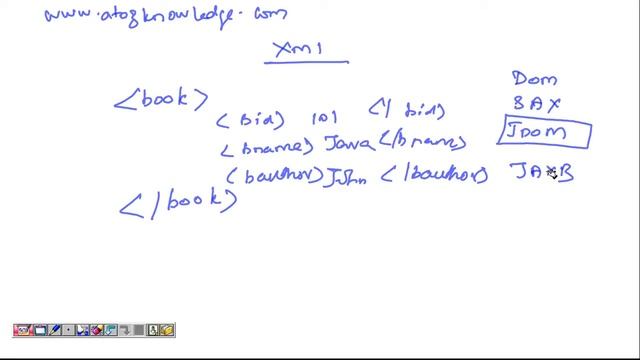 www.atozknowledge.com
Xml
<book>
<bid> 101 </bid>
<bname> Java </bname>
<bauthor> John </bauthor>
</book>
Dom
SAX
JDOM
JAXB